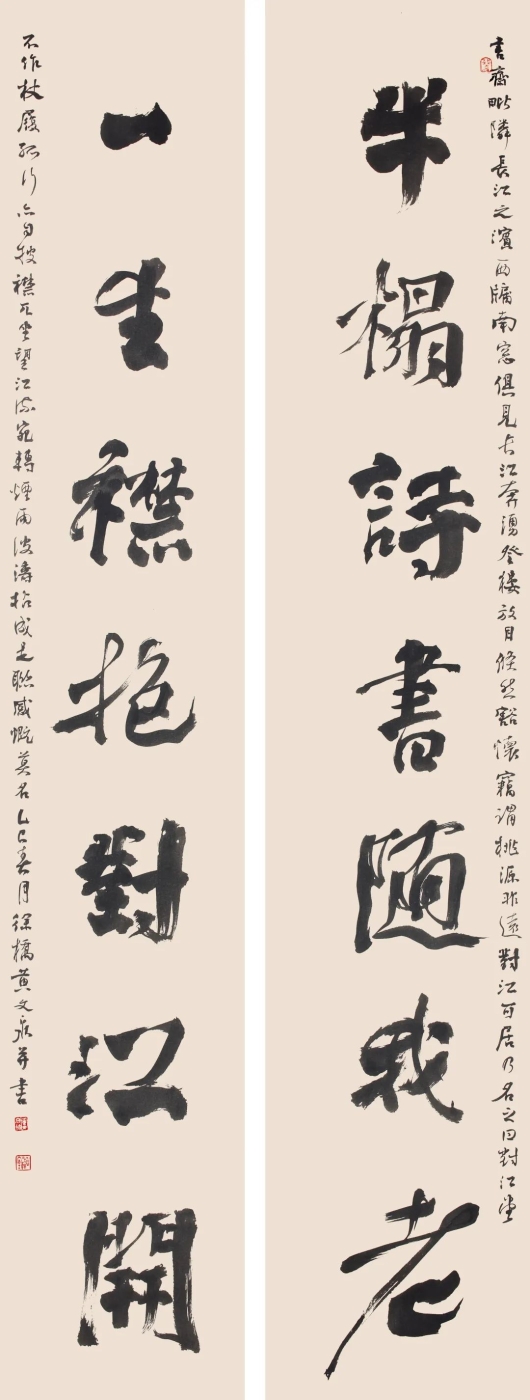 書齋毗隣長江之濱西牖南窓俱見長江奔湧登楼放目倏然豁懷竊謂桃源非遥對江可居乃名之曰對江堂
半榻詩書随我老
一生襟抱對江開
不作杖履孤行亦自披襟兀坐望江流宛轉煙雨波濤拈成是聯感慨莫名乙巳春月徐橋黄文泉并書